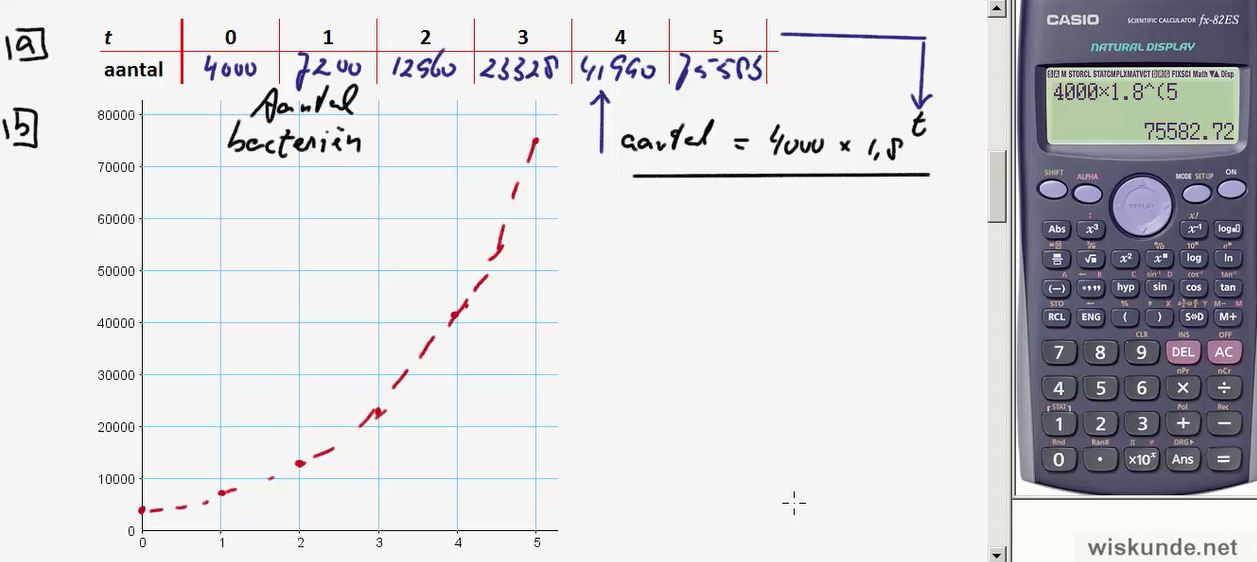 1a
t 0 1 2 3 4 5
aantal 4000 7200 12960 23328 41990 75583
1b
Aantal
bacteriën
aantal = 4000 × 1,8^t
80000
70000
60000
50000
40000
30000
20000
10000
0
0 1 2 3 4 5
CASIO SCIENTIFIC CALCULATOR fx-82ES
NATURAL DISPLAY
4000×1.8^(5
75582.72
SHIFT ALPHA MODE SETUP ON
REPLAY
Abs x³ x⁻¹ log
√ x² log ln
(−) hyp sin cos tan
RCL ENG ( ) S⇔D M+
7 8 9 DEL AC
4 5 6 × ÷
1 2 3 + −
0 . ×10ˣ Ans =
wiskunde.net